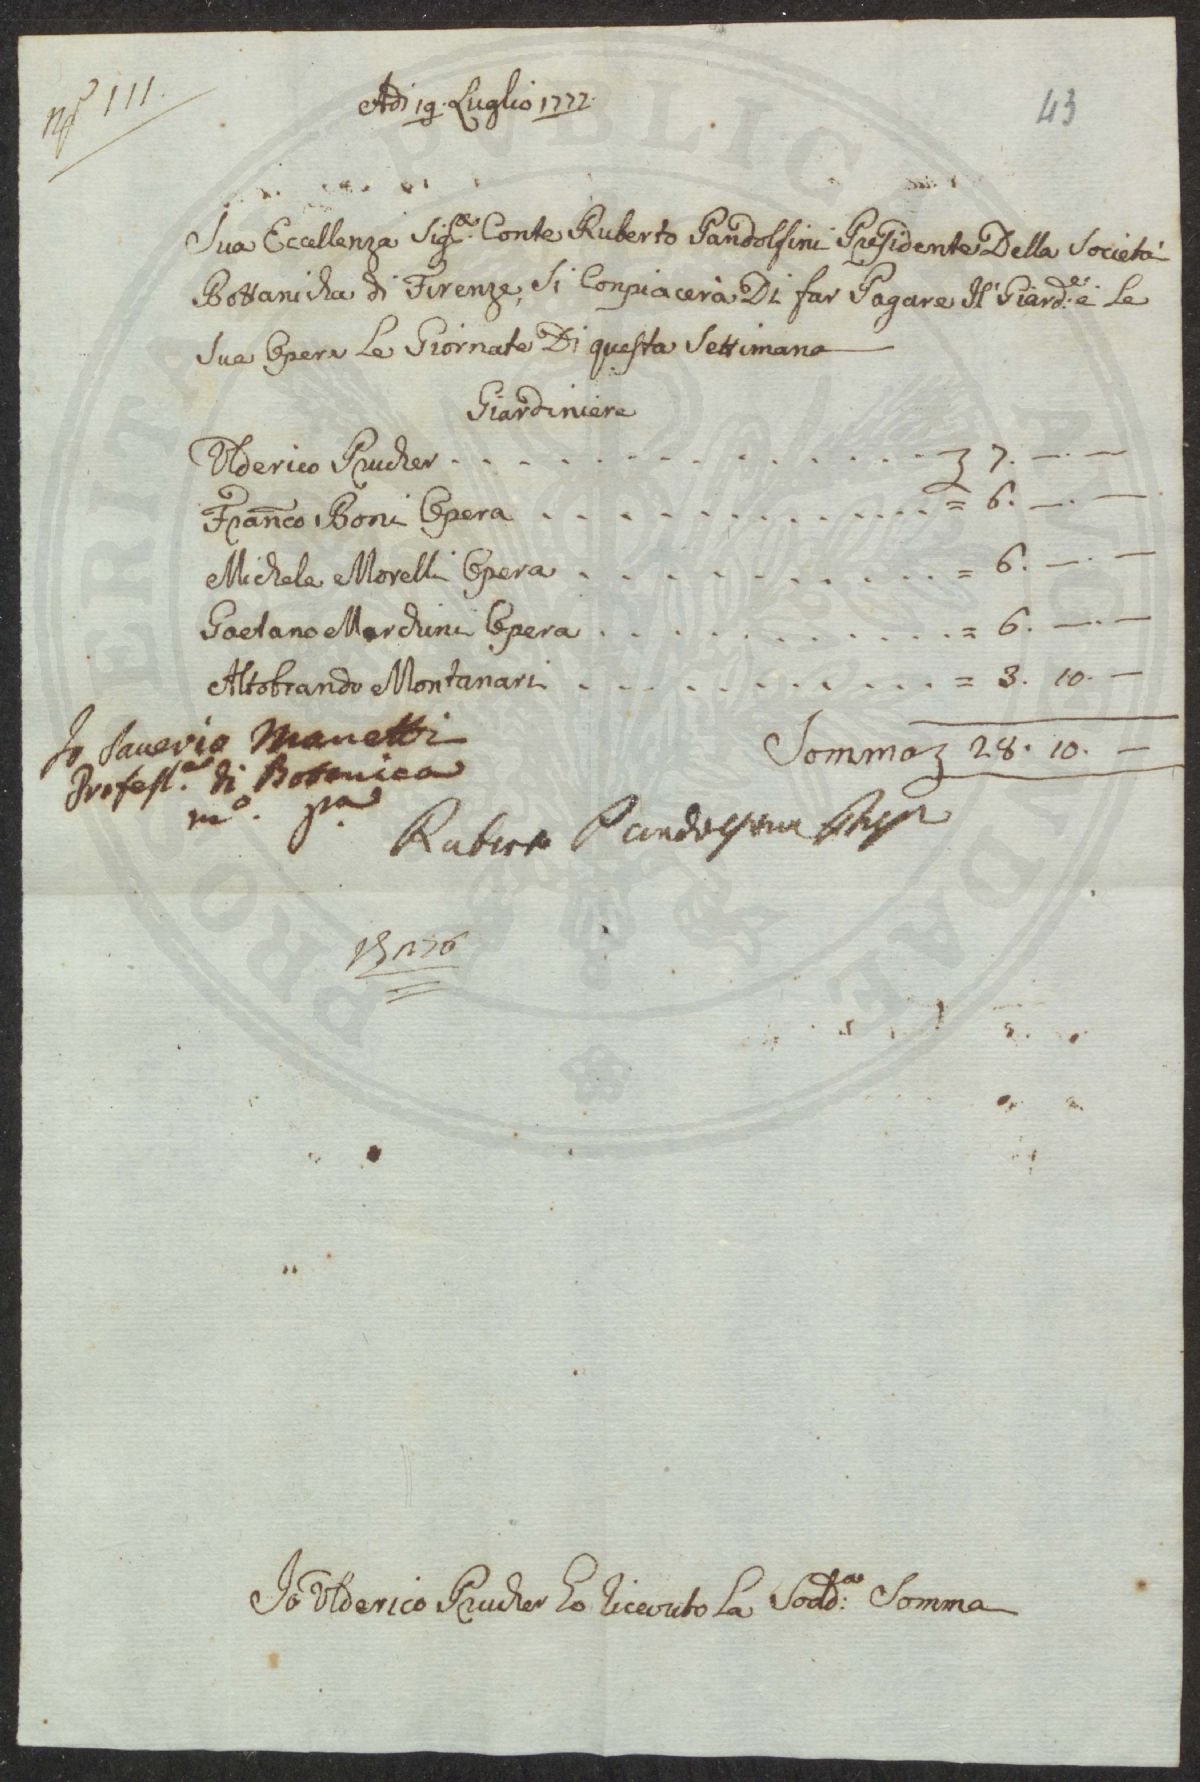 N° 111.
43
Adi 19. Luglio 1777.
Sua Eccellenza Sig.re Conte Ruberto Pandolfini Presidente Della Società
Bottanicha di Firenze, Si Conpiacerà Di far Pagare Il Giard.e é Le
Sue Opera Le Giornate Di questa Settimana
Giardiniere
Ulderico Prucher £ 7. — —
Franco Boni Opera = 6. — —
Michele Morelli Opera = 6. — —
Gaetano Marchini Opera = 6. — —
Altobrando Montanari = 3. 10. —
Somma £ 28. 10. —
Io Saverio Manetti
Profess.e di Botanica
m.o p.a
Ruberto Pandolfini
Io Ulderico Prucher ho ricevuto La Sodd.a Somma
PUBLICAE
PRO